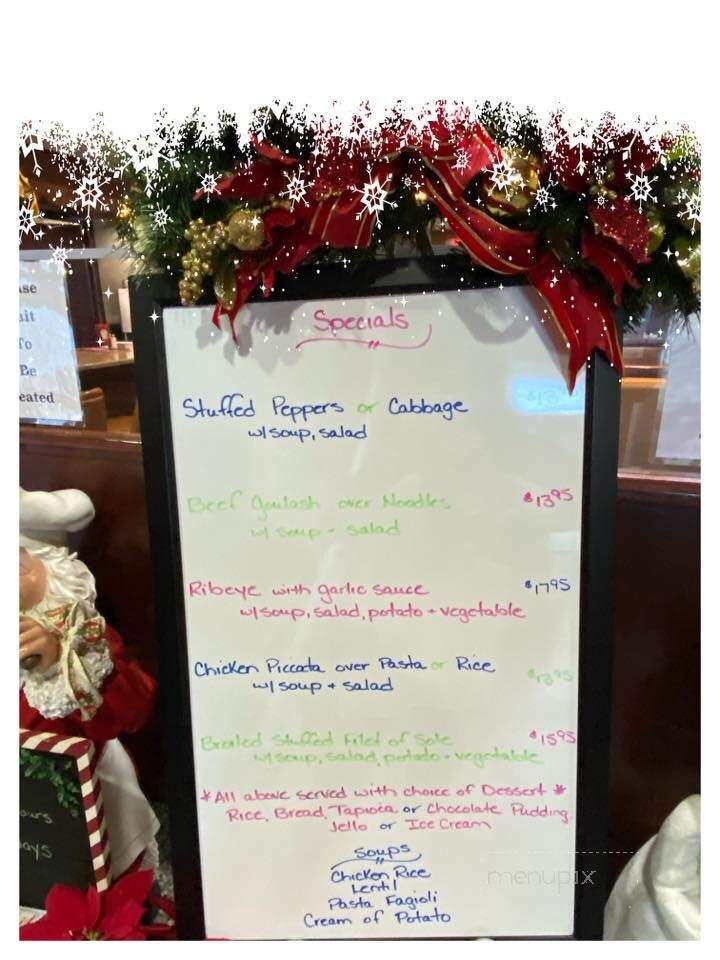 Specials
Stuffed Peppers or Cabbage
w/ soup, salad
Beef Goulash over Noodles $13.95
w/ soup + salad
Ribeye with garlic sauce $17.95
w/ soup, salad, potato + vegetable
Chicken Piccata over Pasta or Rice $13.95
w/ soup + salad
Broiled Stuffed Filet of Sole $15.95
w/ soup, salad, potato + vegetable
*All above served with choice of Dessert *
Rice, Bread, Tapioca or Chocolate Pudding,
Jello or Ice Cream
Soups
Chicken Rice
Lentil
Pasta Fagioli
Cream of Potato
menupix
To
Be